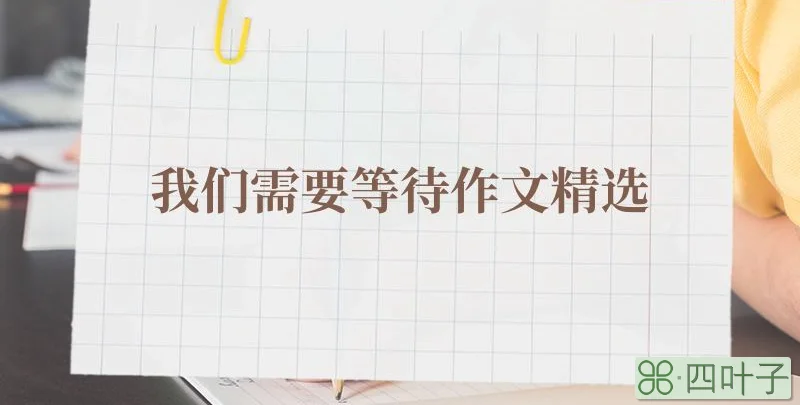 我们需要等待作文精选
四叶子